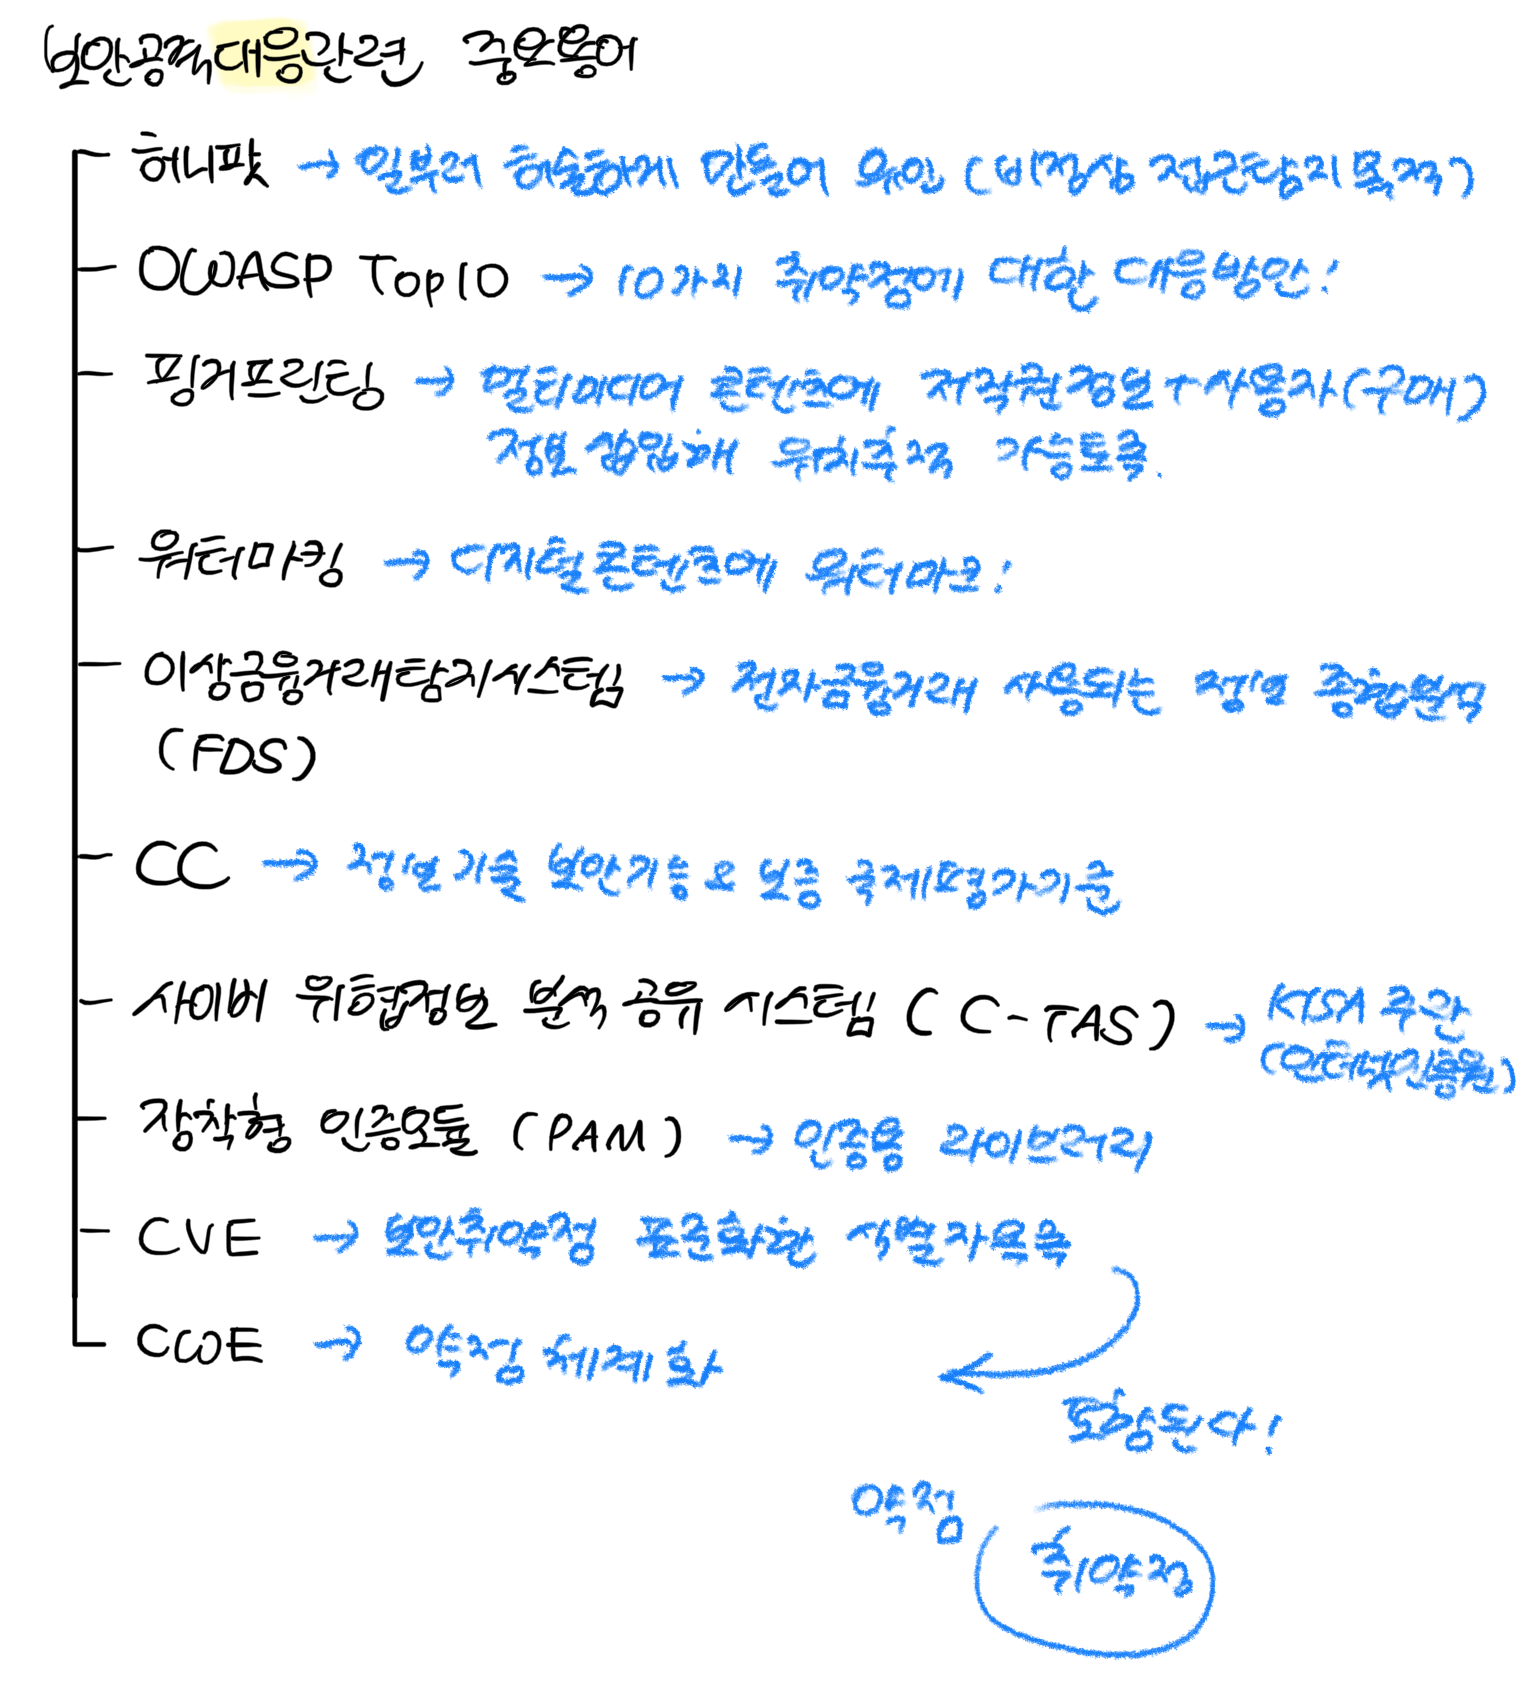 보안공격대응관련 중요용어
허니팟 → 일부러 허술하게 만들어 유인 (비정상 접근탐지 목적)
OWASP Top10 → 10가지 취약점에 대한 대응방안!
핑거프린팅 → 멀티미디어 콘텐츠에 저작권정보+사용자(구매)
정보 삽입해 위치추적 가능토록.
워터마킹 → 디지털콘텐츠에 워터마크!
이상금융거래탐지시스템 → 전자금융거래 사용되는 정보 종합분석
(FDS)
CC → 정보기술 보안기능 & 보증 국제평가기준
사이버 위협정보 분석 공유 시스템 (C-TAS) → KISA 주관
(인터넷진흥원)
장착형 인증모듈 (PAM) → 인증용 라이브러리
CVE → 보안취약점 표준화한 식별자목록
CWE → 약점 체계화
포함된다!
약점
취약점